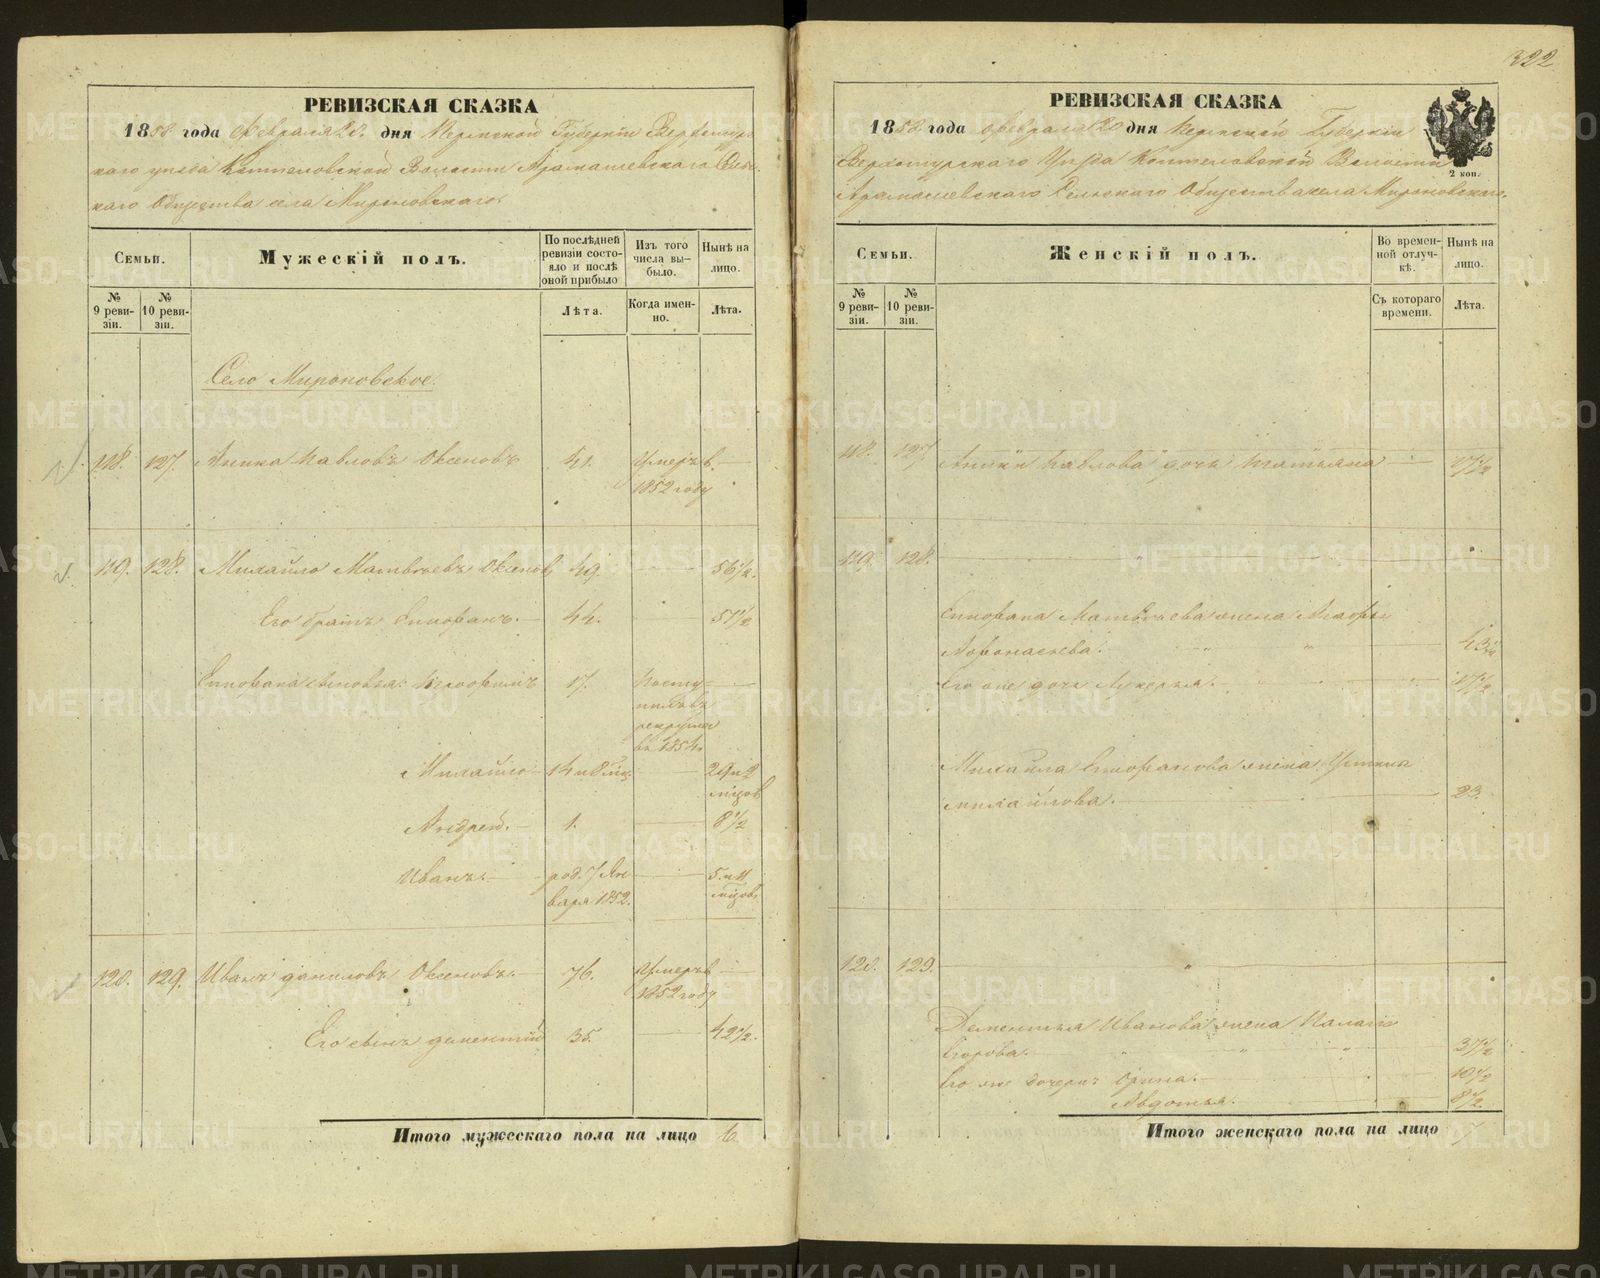 322
РЕВИЗСКАЯ СКАЗКА
1858 года Февраля 20 дня Пермской Губернiи Верхотурс-
каго уезда Коптеловской Волости Арамашевскаго Сель-
каго Общества села Мироновскаго.
Семьи.
Мужескiй полъ.
По послѣдней ревизiи состо-
яло и послѣ
оной прибыло
Изъ того
числа вы-
было.
Нынѣ на
лицо.
№
9 реви-
зiи.
№
10 реви-
зiи.
Лѣта.
Когда имен-
но.
Лѣта.
Село Мироновское.
118. 127. Аника Павловъ Оксеновъ 41. Умеръ в
1852 году
119. 128. Михайло Матвѣевъ Оксеновъ 49. 56½.
Его братъ Епифанъ. 44. 51½
Епифана сыновья: 17. Посту-
пилъ въ
рекруты
въ 1854
Михайло 14 и 8 мц. 29 и 2
мцов
Андрей. 1. 8½
Иванъ. род. 7 Ян-
варя 1852. 5. и 11
мцов
120. 129. Иванъ Даниловъ Оксеновъ. 76. Умеръ в
1852 году
Его сынъ Дементiй 35. 42½.
Итого мужескаго пола на лицо 6.
РЕВИЗСКАЯ СКАЗКА
1858 года Февраля 20 дня Пермской Губернiи
Верхотурскаго Уезда Коптеловской Волости
Арамашевскаго Сельскаго Общества села Мироновскаго.
2 коп.
Семьи.
Женскiй полъ.
Во времен-
ной отлуч-
кѣ.
Нынѣ на
лицо.
№
9 реви-
зiи.
№
10 реви-
зiи.
Съ котораго
времени.
Лѣта.
118. 127. Аники Павлова дочь Татьяна 17½
119. 128.
Епифана Матвѣева жена
Афонасьева.
Его же дочь Лукерья. 17½
Михайла Епифанова жена Устинья
Михайлова. 23.
120. 129.
Дементья Иванова жена Палагiя
Егорова. 37½
Его же дочери: Орина. 10½
Авдотья. 8½
Итого женскаго пола на лицо 7
METRIKI.GASO-URAL.RU